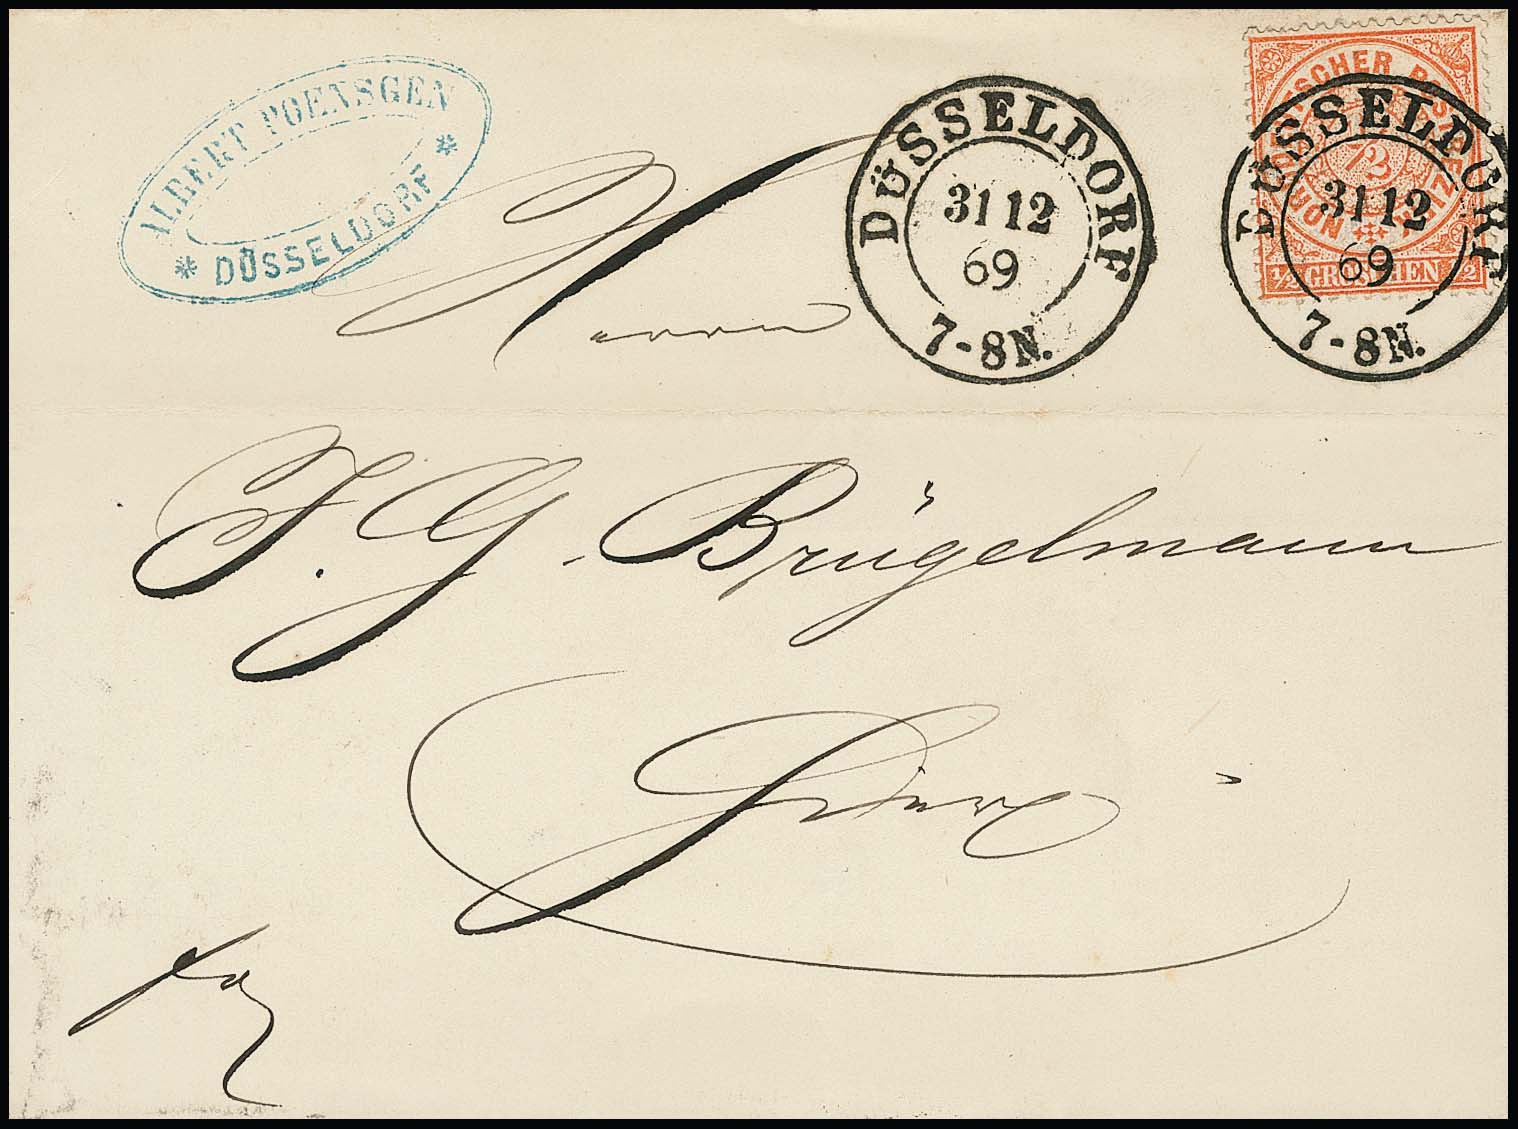 ALBERT POENSGEN
* DÜSSELDORF *
DÜSSELDORF
31 12
69
7-8N.
NORDDEUTSCHER POSTBEZIRK
1/2
1/2 GROSCHEN 1/2
DÜSSELDORF
31 12
69
7-8N.
Herrn
F. G. Brügelmann